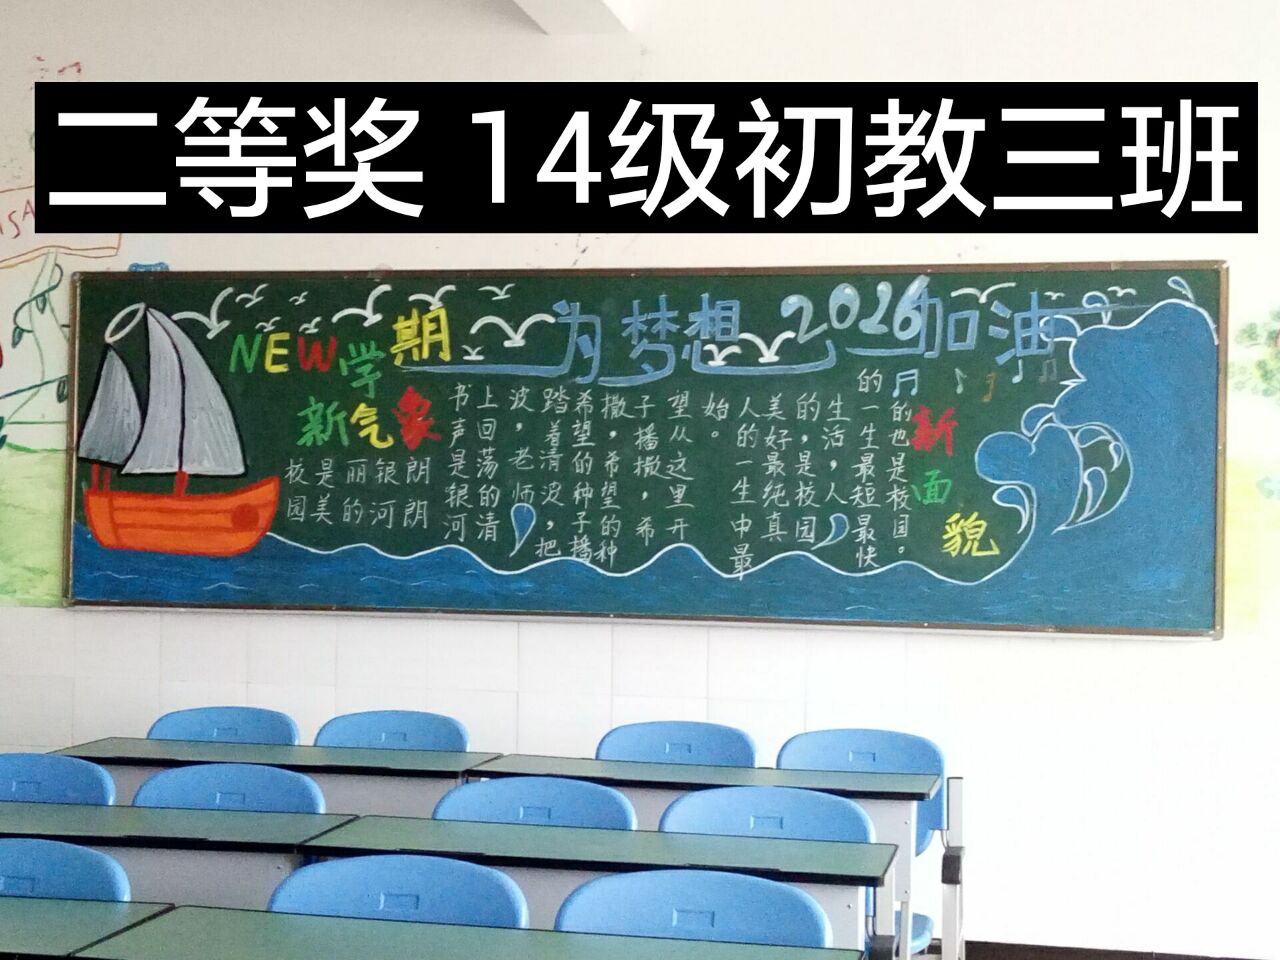 二等奖 14级初教三班
NEW学期
新气象
为梦想2026加油
校园
是美
丽的
银河
朗朗
书声是银河
上回荡的清
波，老师
踏着清波，把
希望的种子播
撒，希望的种
子播撒，希
望从这里开
始。
人的一生中最
美好最纯真
的，是校园
生活，人
的一生最短最快
的也是校园。
新面貌